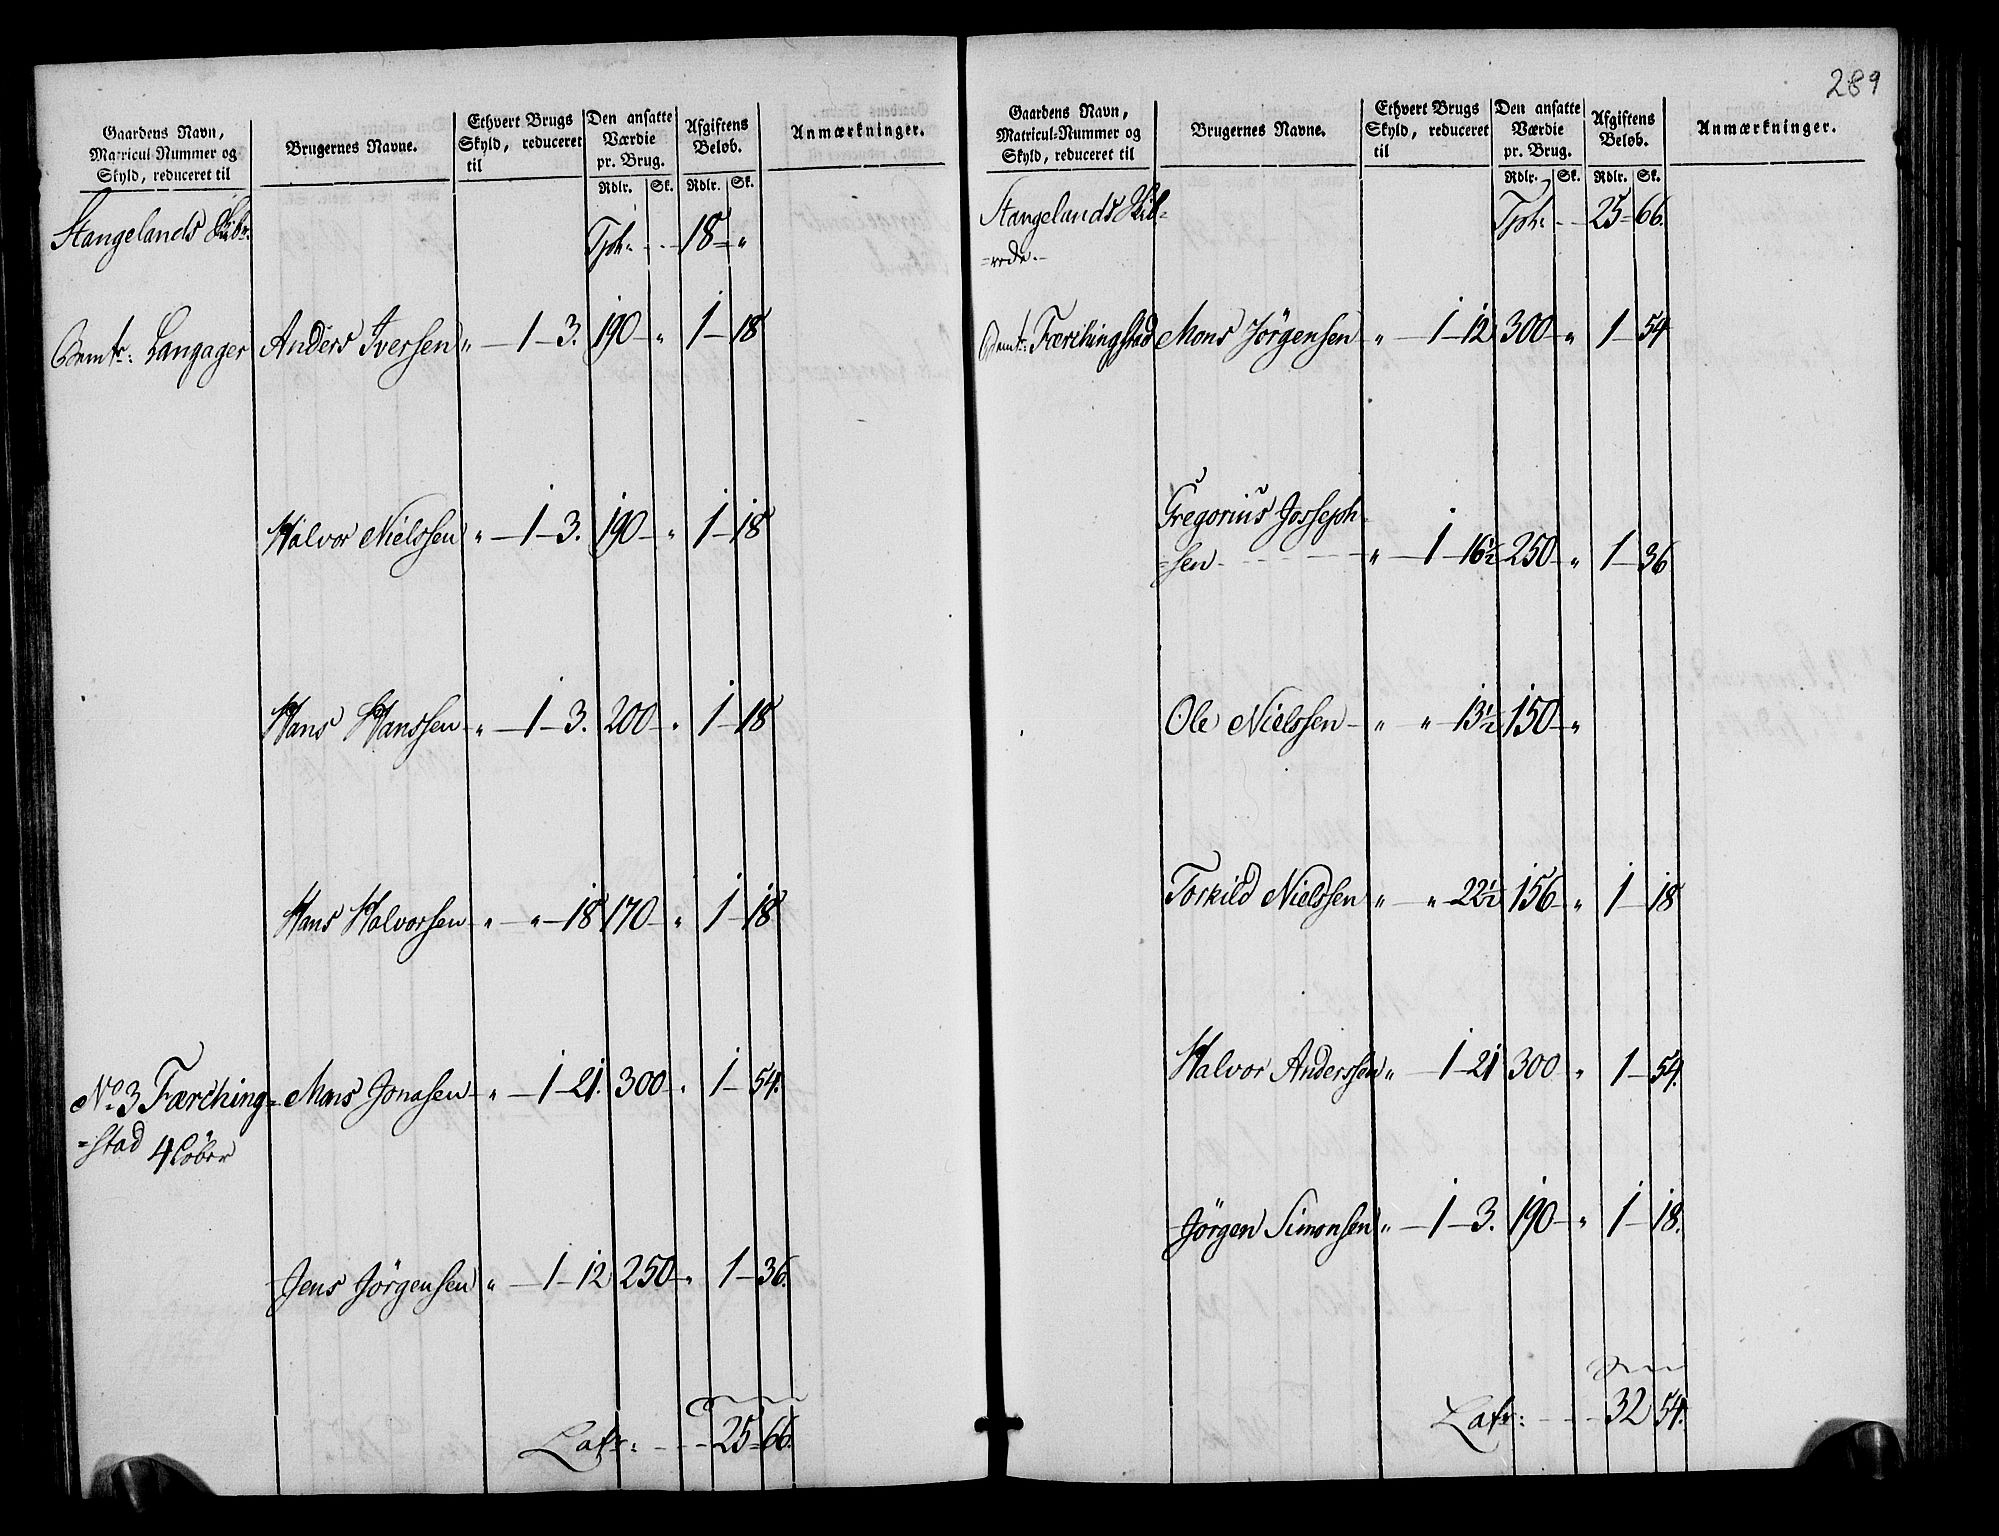 289
Gaardens Navn, Matricul-Nummer og Skyld, reduceret til
Brugernes Navne.
Ethvert Brugs Skyld, reduceret til
Den ansatte Værdie pr. Brug.
Rdlr. Sk.
Afgiftens Beløb.
Rdlr. Sk.
Anmærkninger.
Stangelands Skibr.
Tpt: - - 18 - "
Langager Anders Iversen " - 1 - 3. 190 - " 1 - 18
Halvor Nielssen " - 1 - 3. 190 - " 1 - 18
Hans Hanssen - " - 1 - 3. 200 - " 1 - 18
Hans Halvorsen - " - " - 18 170 - " 1 - 18
No. 3 Færching= Mons Jonasen - " - 1 - 21. 300 - " 1 - 54.
=stad 4 Löber
Jens Jörgensen " - 1 - 12 250 - " 1 - 36.
Latr: - - - 25 - 66.
Gaardens Navn, Matricul-Nummer og Skyld, reduceret til
Brugernes Navne.
Ethvert Brugs Skyld, reduceret til
Den ansatte Værdie pr. Brug.
Rdlr. Sk.
Afgiftens Beløb.
Rdlr. Sk.
Anmærkninger.
Stangelands Skib=
=rede.
Tpt: - - 25 - 66.
Færchingstad Mons Jörgensen " - 1 - 12 300 - " 1 - 54
Gregorius Josseph
=sen - - - - " - 1 - 16½ 250 - " 1 - 36
Ole Nielssen - " " - 13½ 150 - "
Torkild Nielssen " - " - 22½ 156 - " 1 - 18
Halvor Anderssen " - 1 - 21 300 " 1 - 54.
Jörgen Simonsen " - 1 - 3. 190 - " 1 - 18.
Latr: - - - 32 54.